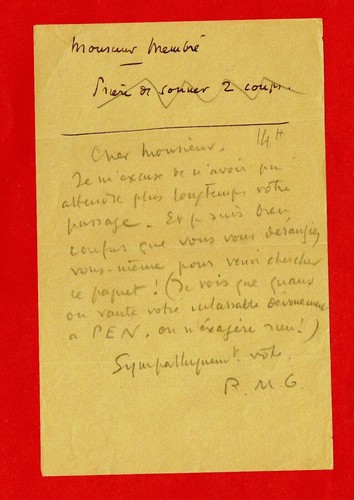 Monsieur Membré
Prière de sonner 2 coups.
14 H
Cher Monsieur,
Je m'excuse de n'avoir pu
attendre plus longtemps votre
passage. Et je suis bien
confus que vous vous dérangiez
vous-même pour venir chercher
ce paquet ! (Je vois que quand
on vante votre inlassable dévouement
a PEN, on n'exagère rien !)
Sympathiquemt vôtre,
R. M. G.